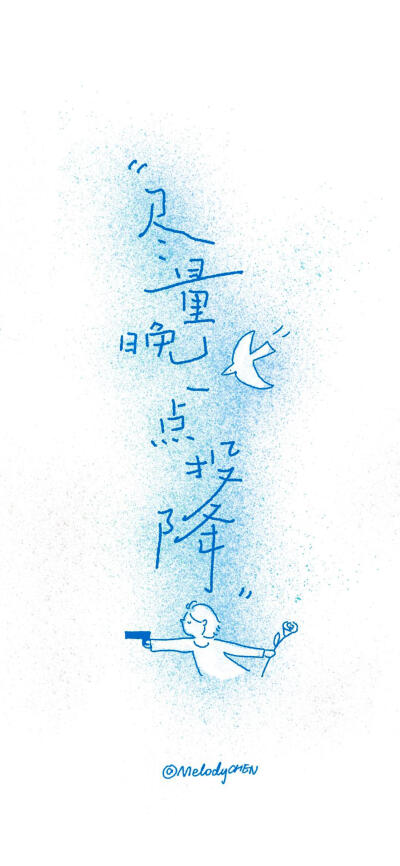 “尽量晚一点投降”
©MelodyCHEN